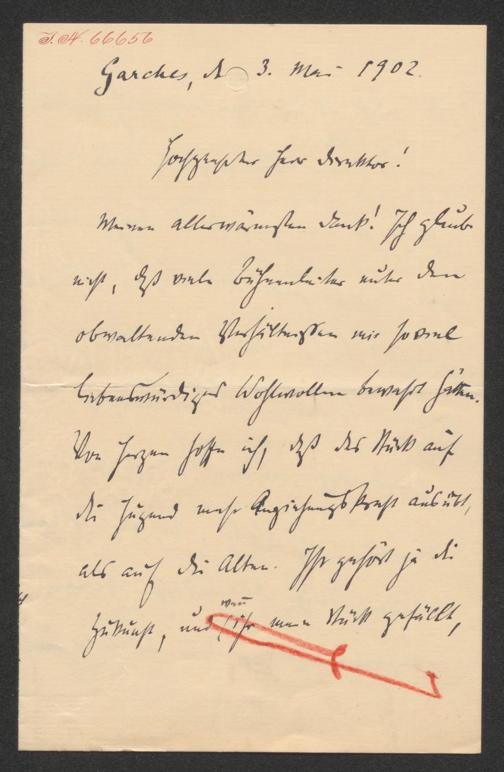 I. N. 66656
Garches, d 3. Mai 1902.
Hochgeehrter Herr Direktor!
Meinen allerwärmsten Dank! Ich glaube
nicht, daß viele Bühnenleiter unter den
obwaltenden Verhältnissen mir soviel
liebenswürdiges Wohlwollen bewahrt hätten.
Von Herzen hoffe ich, daß das Stück auf
die Jugend mehr Anziehungskraft ausübt,
als auf die Alten. Ihr gehört ja die
wenn
Zukunft, und ihr mein Stück gefällt,